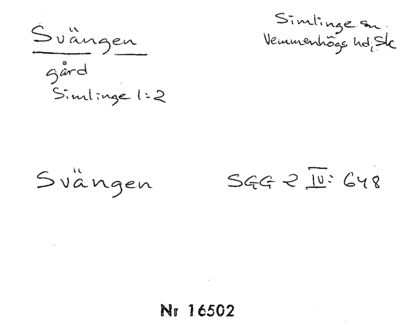 Svängen
Simlinge sn.
Vemmenhögs hd, Sk
gård
Simlinge 1:2
Svängen
SGG 2 IV: 648
Nr 16502